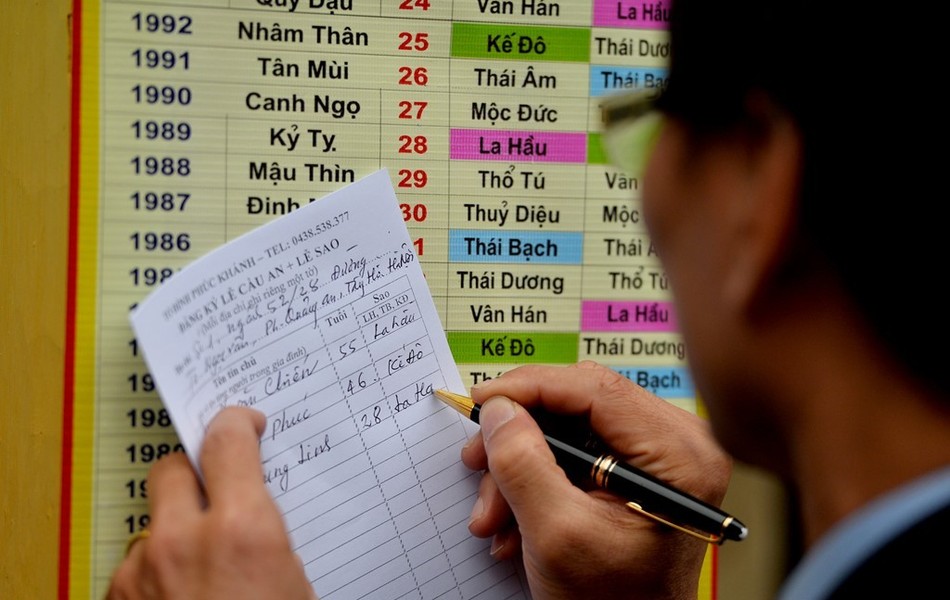 Quý Dậu 24 Vân Hán La Hầu
1992 Nhâm Thân 25 Kế Đô Thái Dươ
1991 Tân Mùi 26 Thái Âm Thái Bạch
1990 Canh Ngọ 27 Mộc Đức
1989 Kỷ Tỵ 28 La Hầu
1988 Mậu Thìn 29 Thổ Tú Vân
1987 Đinh 30 Thuỷ Diệu Mộc
1986 1 Thái Bạch Thái Â
198 Thái Dương Thổ Tú
1 Vân Hán La Hầu
1 Kế Đô Thái Dương
19 Bạch
198
1980
19
19
PHÚC KHÁNH – TEL: 0438.538.377
ĐĂNG KÝ LỄ CẦU AN + LỄ SAO
(Mỗi địa chỉ ghi riêng một tờ)
ngõ 52/28 Đường
Ngọc Vân, Ph. Quảng An, Tây Hồ Hà Nội
Tên tín chủ Tuổi Sao
người trong gia đình) LH, TB, KĐ
Chiến 55 La hầu
Phúc 46 Kế Đô
28 La Hầ